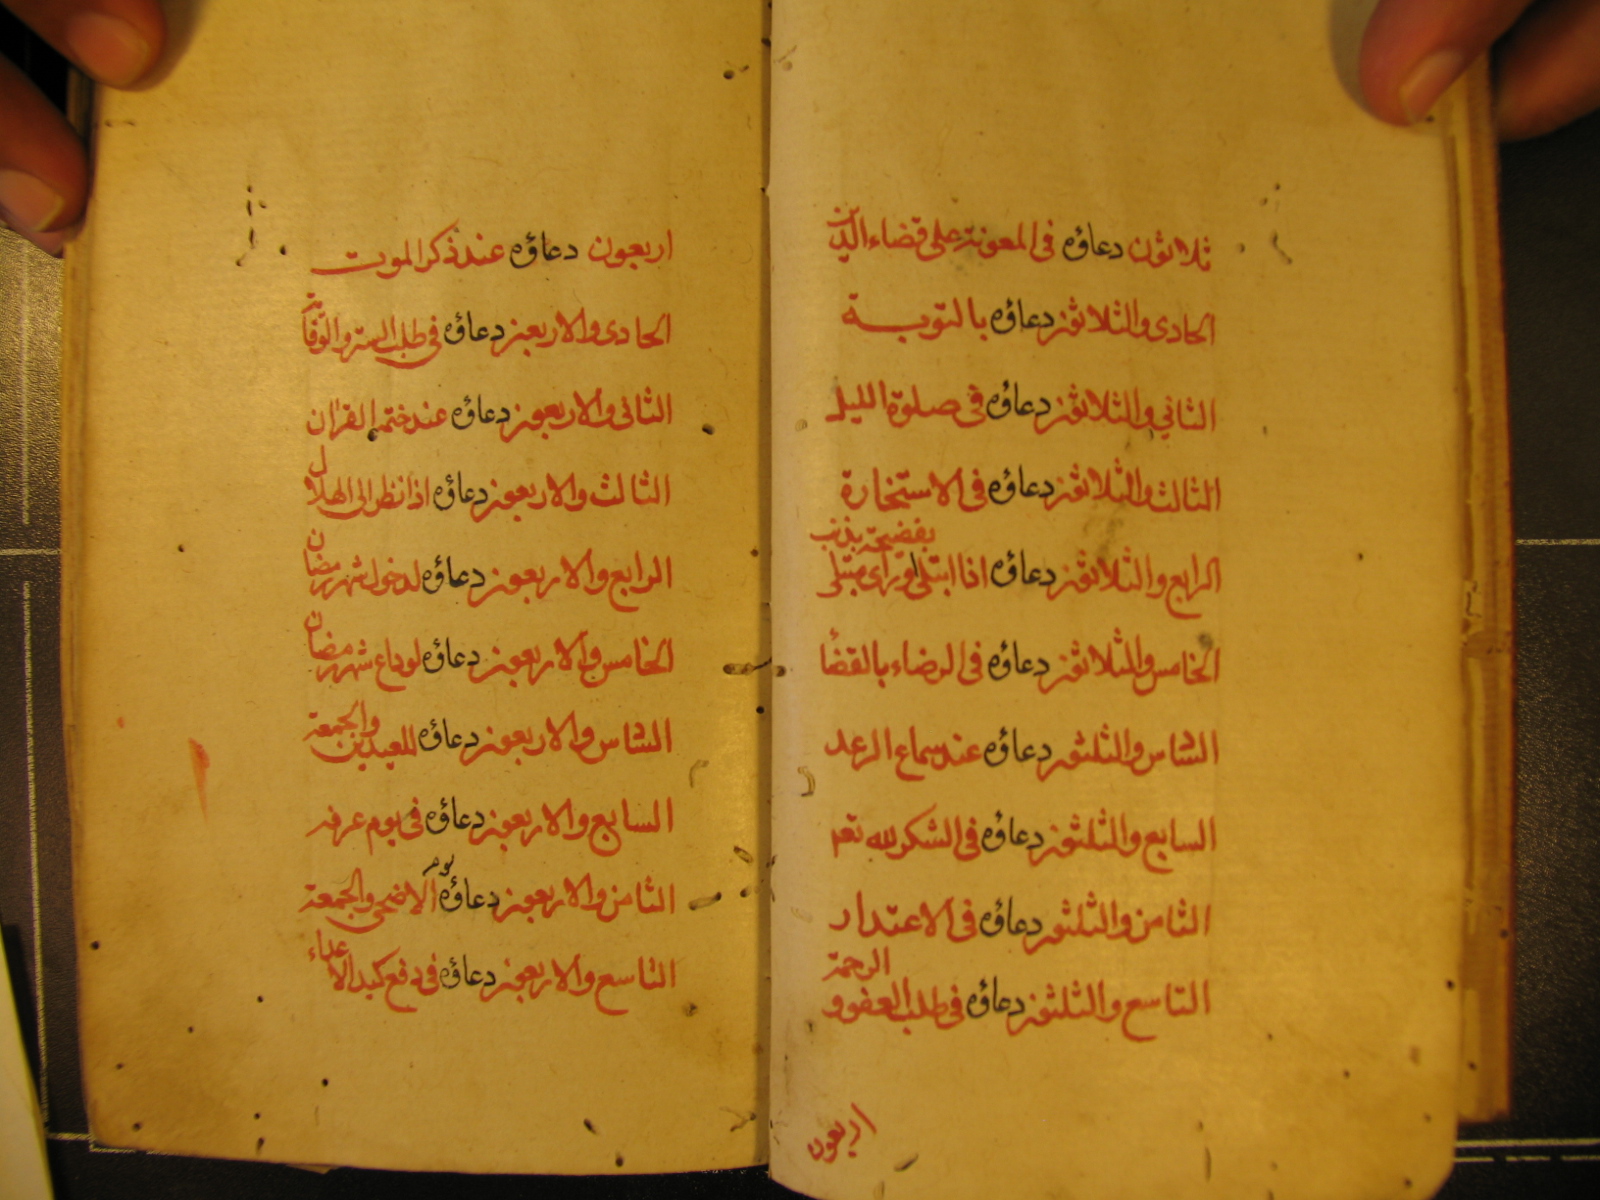 ثلاثون دعاؤه فى المعونة على قضاء الدين
الحادى والثلاثون دعاؤه بالتوبة
الثاني والثلاثون دعاؤه فى صلوة الليل
الثالث والثلاثون دعاؤه فى الاستخارة
الرابع والثلاثون دعاؤه اذا ابتلى او راى مبتلى بفضيحة بذنب
الخامس والثلاثون دعاؤه فى الرضاء بالقضا
السادس والثلثون دعاؤه عند سماع الرعد
السابع والثلثون دعاؤه فى الشكر لله تعم
الثامن والثلثون دعاؤه فى الاعتدار
التاسع والثلثون دعاؤه فى طلب العفو و الرحمة
اربعون
اربعون دعاؤه عند ذكر الموت
الحادى والاربعون دعاؤه فى طلب الستر والوقاية
الثانى والاربعون دعاؤه عند ختم القران
الثالث والاربعون دعاؤه اذا نظر الى الهلال
الرابع والاربعون دعاؤه لدخول شهر رمضان
الخامس والاربعون دعاؤه لوداع شهر رمضان
السادس والاربعون دعاؤه للعيدين والجمعة
السابع والاربعون دعاؤه فى يوم عرفه
الثامن والاربعون دعاؤه يوم الاضحى والجمعة
التاسع والاربعون دعاؤه فى دفع كيد الاعداء